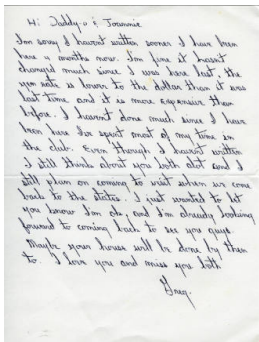 Hi Daddy-o & Joannie
I'm sorry I havn't written sooner I have been
here 4 months now. I'm fine it hasn't
changed much since I was here last, the
yen rate is lower to the dollar than it was
last time and it is more expensive then
before. I havn't done much since I have
been here I've spent most of my time in
the club. Even though I havn't written
I still think about you both alot and I
still plan on coming to visit when we come
back to the states. I just wanted to let
you know I'm ok, and I'm already looking
forward to coming back to see you guys.
Maybe your house will be done by then
to. I love you and miss you both
Greg.